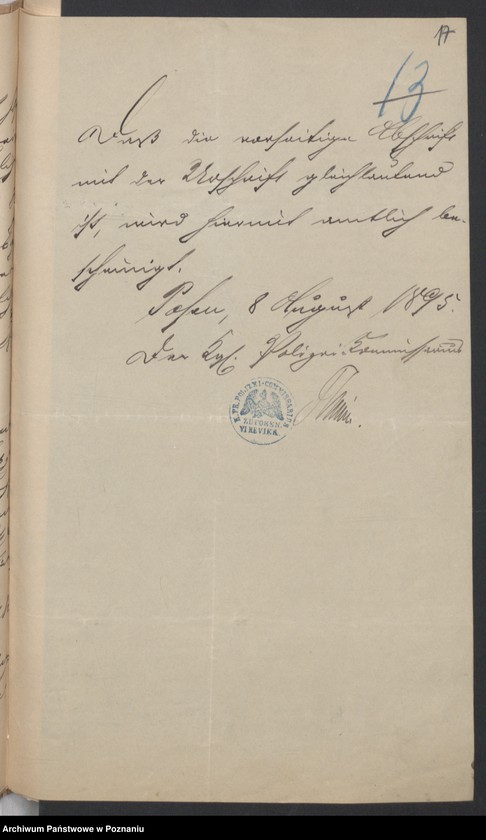 17
13
Daß die vorseitige Abschrift
mit der Urschrift gleichlautend
ist, wird hiermit amtlich be-
scheinigt.
Posen, 8 August 1895.
Der Kgl. Polizei-Kommissarius
K. PR. POLIZEI-COMMISSARIUS
ZU POSEN
VI REVIER
Archiwum Państwowe w Poznaniu